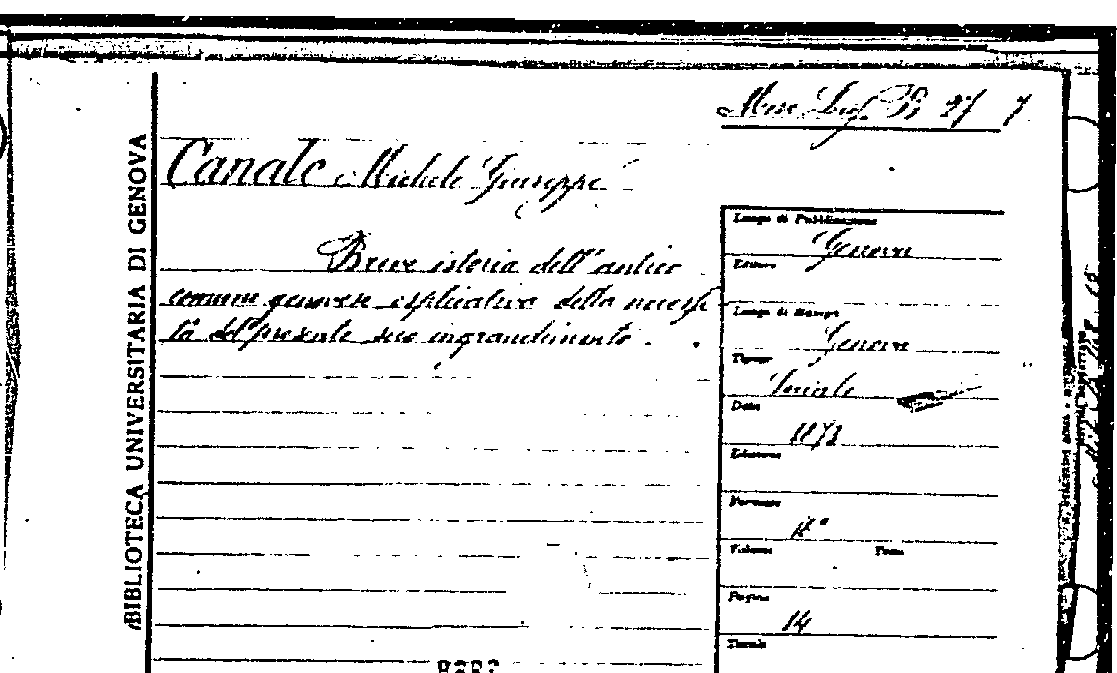 BIBLIOTECA UNIVERSITARIA DI GENOVA
Misc Lig. B 27 7
Canale Michele Giuseppe
Breve istoria dell'antico
comune genovese esplicativa della necessi
tà del presente suo ingrandimento.
Luogo di Pubblicazione
Genova
Editore
Luogo di Stampa
Genova
Tipogr.
Sociale
Data
Edizione
Formato
Volume Tomo
Pagine
14